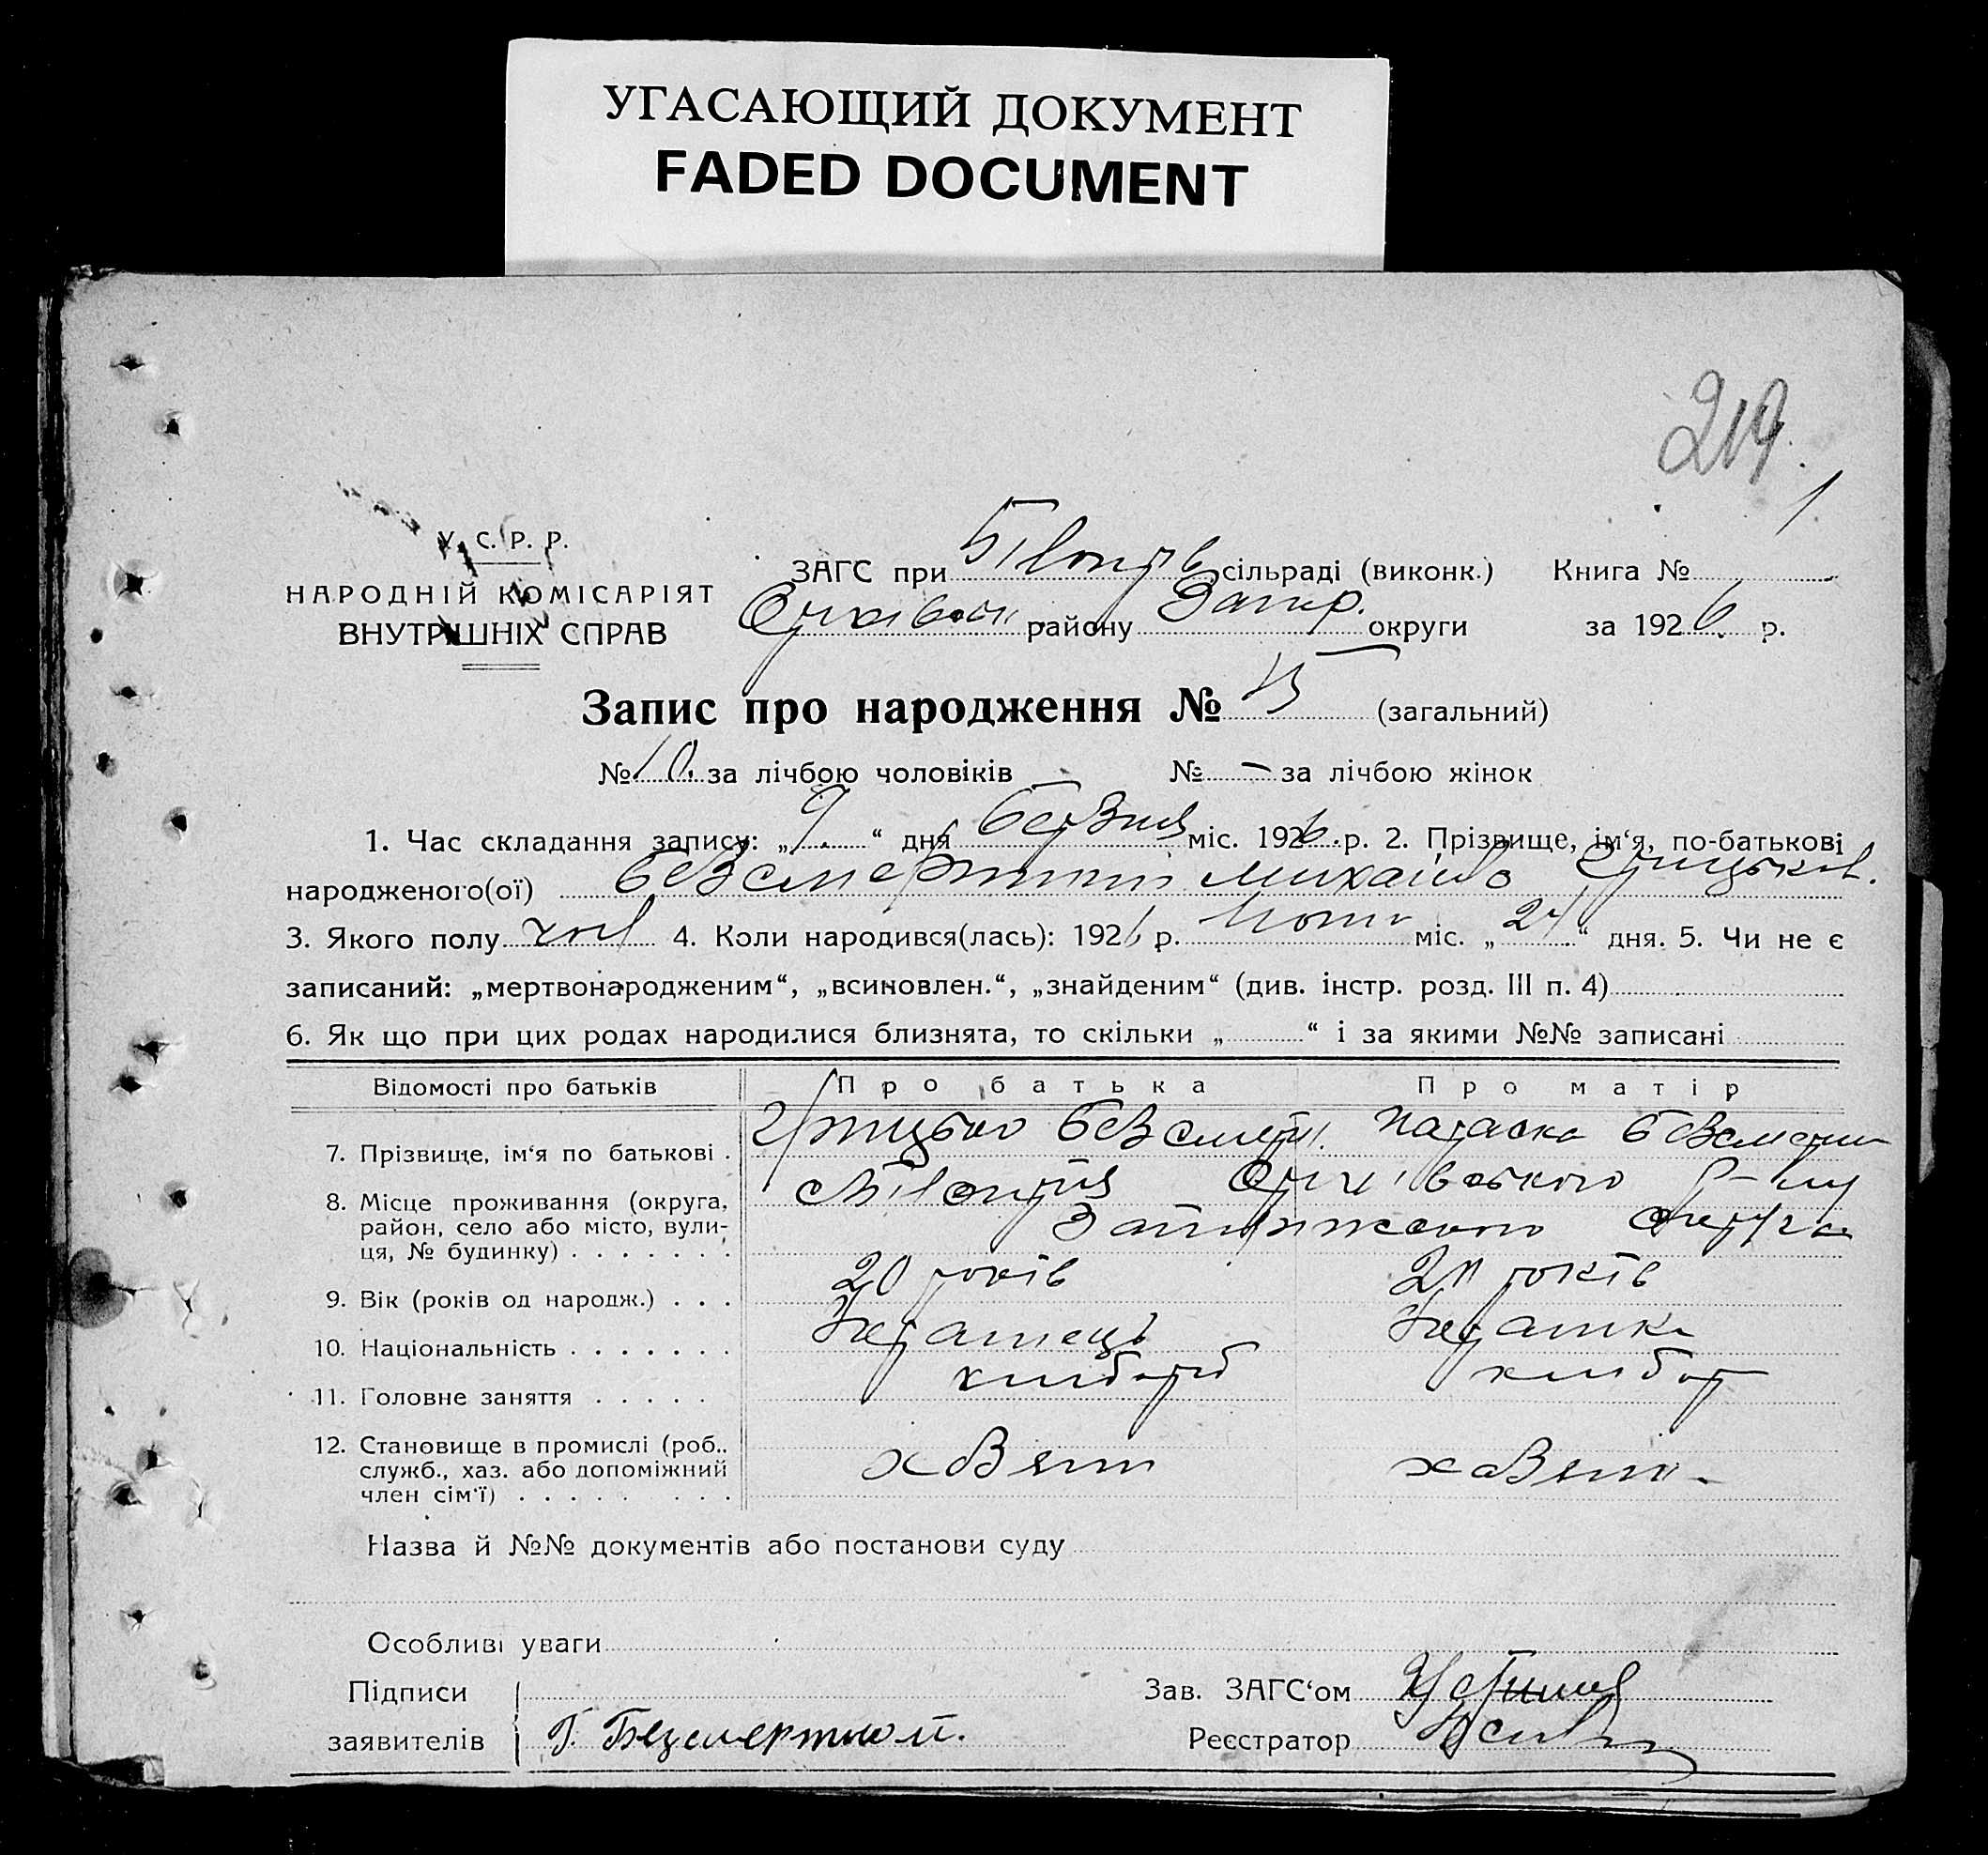 УГАСАЮЩИЙ ДОКУМЕНТ
FADED DOCUMENT
219.
1
У. С. Р. Р.
НАРОДНІЙ КОМІСАРІЯТ
ВНУТРІШНІХ СПРАВ
ЗАГС при Білогірв сільраді (виконк.) Книга №
Оріхівськ району Запор. округи за 1926 р.
Запис про народження № 15 (загальний)
№ 10. за лічбою чоловіків № – за лічбою жінок
1. Час складання запису: „9“ дня березня міс. 1926 р. 2. Прізвище, ім‘я, по-батькові
народженого(ої) Безсмертний Михайло Грицьков.
3. Якого полу чол 4. Коли народився(лась): 1926 р. Лют міс. „24“ дня. 5. Чи не є
записаний: „мертвонародженим“, „всиновлен.“, „знайденим“ (див. інстр. розд. III п. 4)
6. Як що при цих родах народилися близнята, то скільки „ “ і за якими №№ записані
Відомості про батьків Про батька Про матір
7. Прізвище, ім‘я по батькові . Грицько Безсмерт. Параска Безсмертн
8. Місце проживання (округа, район, село або місто, вулиця, № будинку) . . . . . . . с Білогірья Оріхівського р-ну
Запоріжською округи
9. Вік (років од народж.) . . . 20 років 20 років
10. Національність . . . . . . . Украінець Украінка
11. Головне заняття . . . . . хлібороб хлібор
12. Становище в промислі (роб., служб., хаз. або допоміжний член сім‘ї) . . . . . . . . хазяін хазяін
Назва й №№ документів або постанови суду
Особливі уваги
Підписи Зав. ЗАГС‘ом
заявителів Г. Безсмертной. Реєстратор